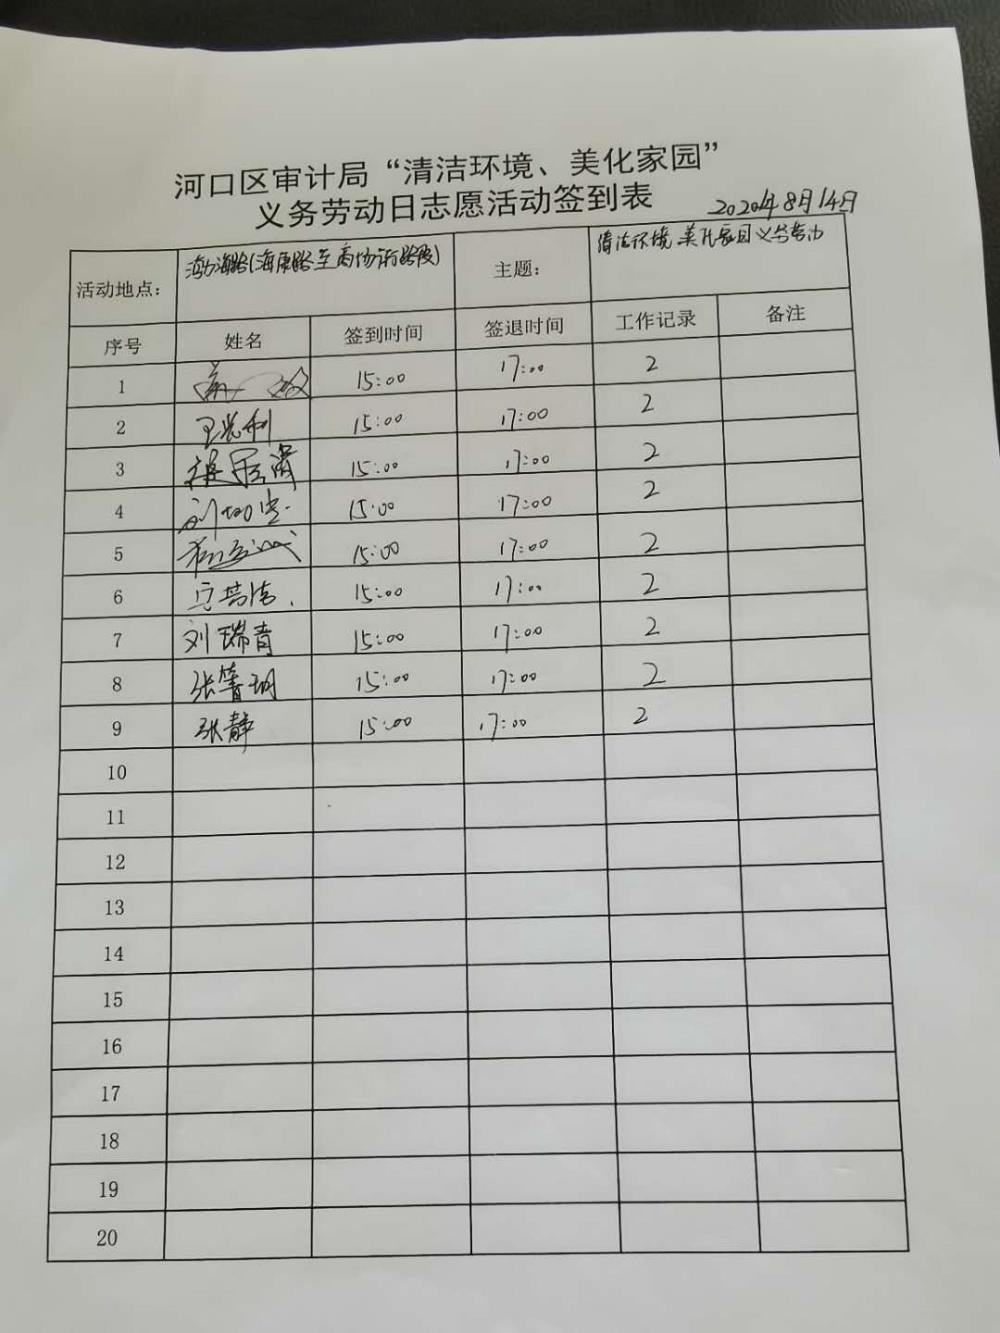 河口区审计局“清洁环境、美化家园”
义务劳动日志愿活动签到表
2020年8月14日
活动地点： 渤海路(海康路至 路段) 主题： 清洁环境 美化家园义务劳动
序号 姓名 签到时间 签退时间 工作记录 备注
1 15:00 17:00 2
2 15:00 17:00 2
3 15:00 17:00 2
4 15:00 17:00 2
5 15:00 17:00 2
6 15:00 17:00 2
7 刘瑞青 15:00 17:00 2
8 张 15:00 17:00 2
9 张静 15:00 17:00 2
10
11
12
13
14
15
16
17
18
19
20